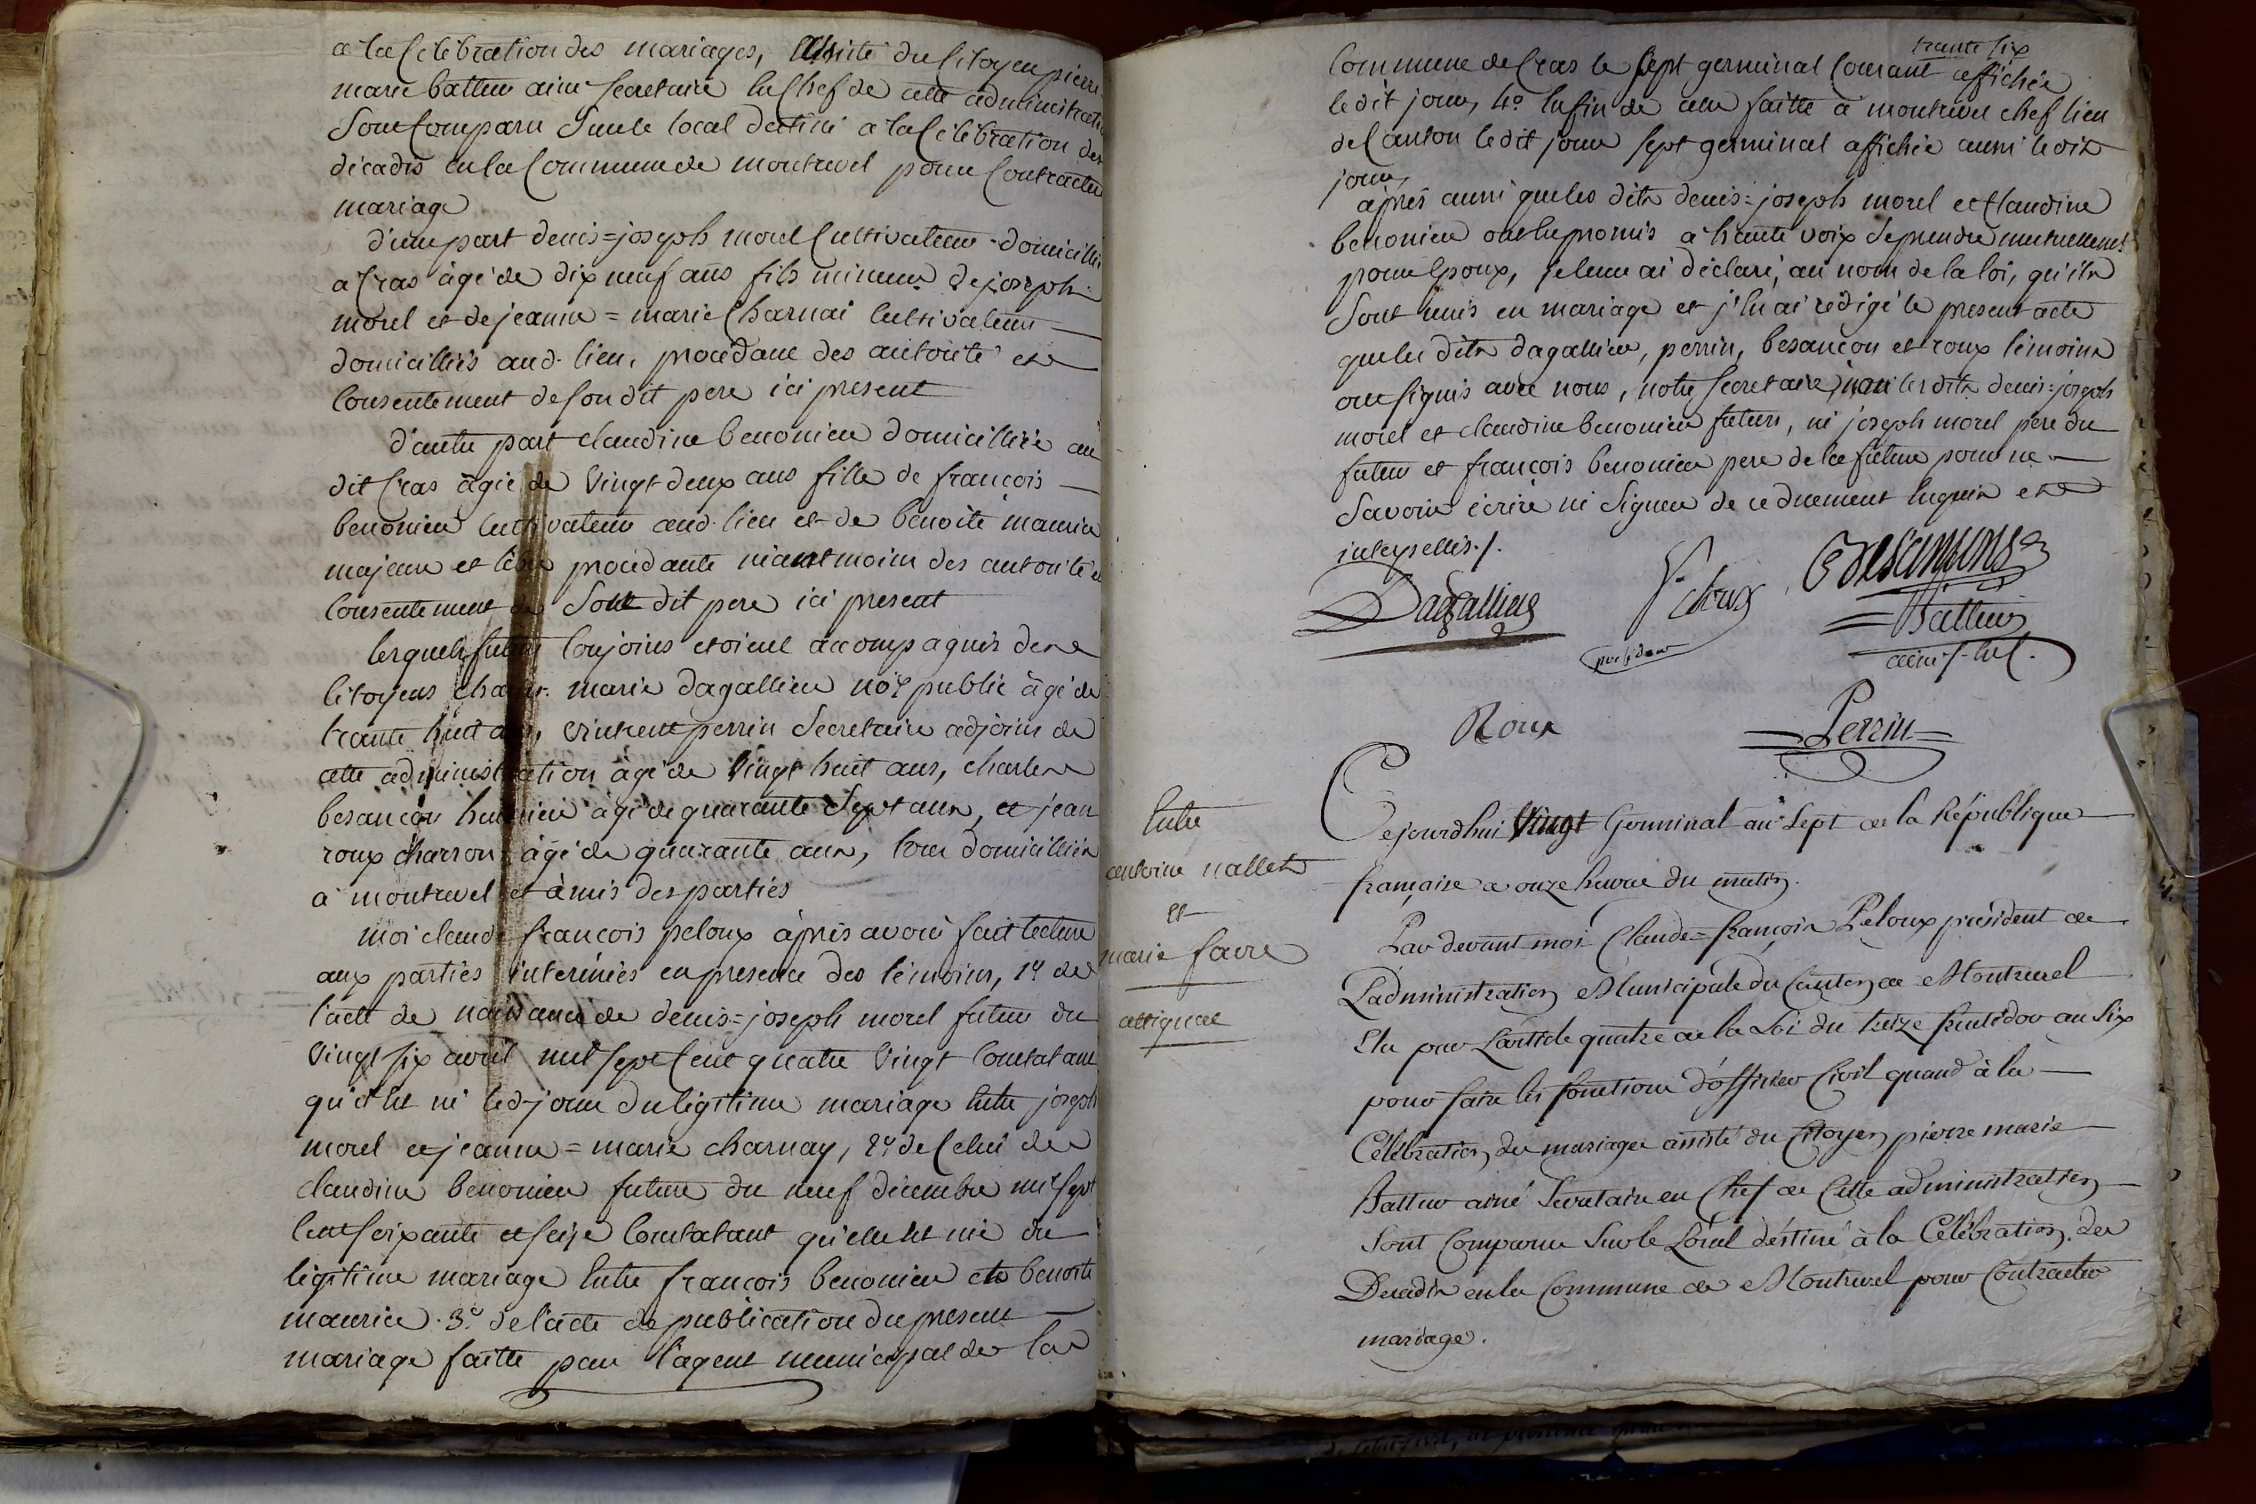 a la Celebration des mariages, assisté du Citoyen pierre
marie battur ainé secretaire en Chef de cette administration
Sont Comparu Sur le local destiné a la Célébration des
décadis en la Commune de montrevel pour Contracter
mariage
d'une part denis=joseph morel Cultivateur domicillié
a Cras âgé de dix neuf ans fils mineur de joseph
morel et de jeanne=marie Charnai Cultivateurs
domicilliés aud. lieu, procédant des autorité et
Consentement de son dit pere ici présent
d'autre part claudine benonier domicilliée au
dit Cras âgée de vingt deux ans fille de françois
benonier Cultivateur aud. lieu et de benoite maurier
majeure et libre procédante néantmoins des autorité et
Consentement de Sont dit pere ici présent
lesquels futurs Conjoins etoient accompagnés des
Citoyens Charles marie dagallier no.re public âgé de
trante huit ans, vincent perrin Secretaire adjoint de
cette administration âgé de vingt huit ans, charles
besançon huissier âgé de quarante Sept ans, et jean
roux charron âgé de quarante ans, tous domicilliés
à montrevel et âmis des parties
moi claude françois peloux après avoir fait lecture
aux parties interinées en presence des témoins, 1.° de
l'acte de naissance de denis=joseph morel futur du
vingt six avril mil sept Cent quatre vingt Constatant
qu'il est né led. jour du légitime mariage entre joseph
morel et jeanne=marie charnay, 2.° de Celui de
claudine benonier future du neuf décembre mil sept
Cent soixante et seize Constatant qu'elle est née du
légitime mariage entre françois benonier et benoite
maurier. 3.° de l'acte de publication du present
mariage faitte par l'agent municipal de la
trante six
Commune de Cras le sept germinal Courant affichée
le dit jour, 4.° enfin de celle faitte à montrevel chef lieu
de Canton le dit jour sept germinal affichée aussi le dit
jour,
après aussi que les dits denis=joseph morel et Claudine
benonier ont eu promis à haute voix de prendre mutuellement
pour Epoux, je leur ai déclaré, au nom de la loi, qu'ils
sont unis en mariage et j'en ai rédigé le present acte
que les dits dagallier, perrin, besançon et roux témoins
ont signés avec nous, notre secretaire, non les dits denis=joseph
morel et claudine benonier futurs, ni joseph morel pere du
futur et françois benonier pere de la future pour ne
Savoir écrire ni Signer de ce duement enquis et
interpellés./.
Dagallier
président
Battur
ainé s. en C.
Roux
Perrin
Entre
antoine nallet
et
marie favre
attignat
Cejourdhui Vingt Germinal an Sept de la République
française a onze heures du matin.
Par devant moi Claude=françois Peloux président de
L'administration Municipale du Canton de Montrevel
Elu par L'article quatre de la Loi du treize fructidor an Six
pour faire les fonctions d'officier Civil quand à la
Célébration des mariages assisté du Citoyen pierre marie
Battur ainé Secretaire en Chef de Cette administration
Sont Comparus Sur le Local déstiné à la Célébration des
Decadis en la Commune de Montrevel pour Contracter
mariage.